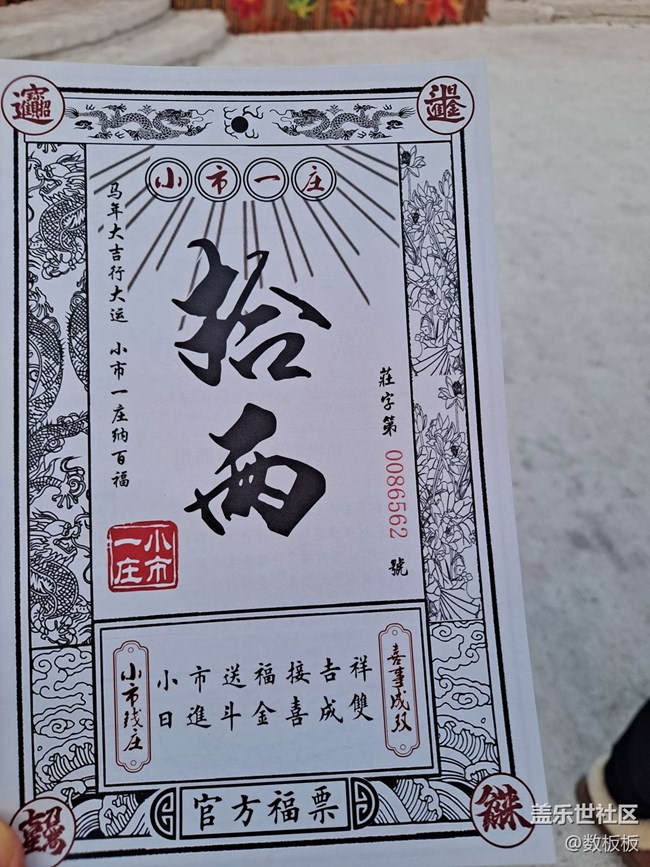 招财进宝
日进斗金
小市一庄
马年大吉行大运 小市一庄纳百福
拾两
莊字第0086562號
小市一庄
小市钱庄
小市送福接吉祥
日進斗金喜成雙
喜事成双
官方福票
盖乐世社区
@数板板